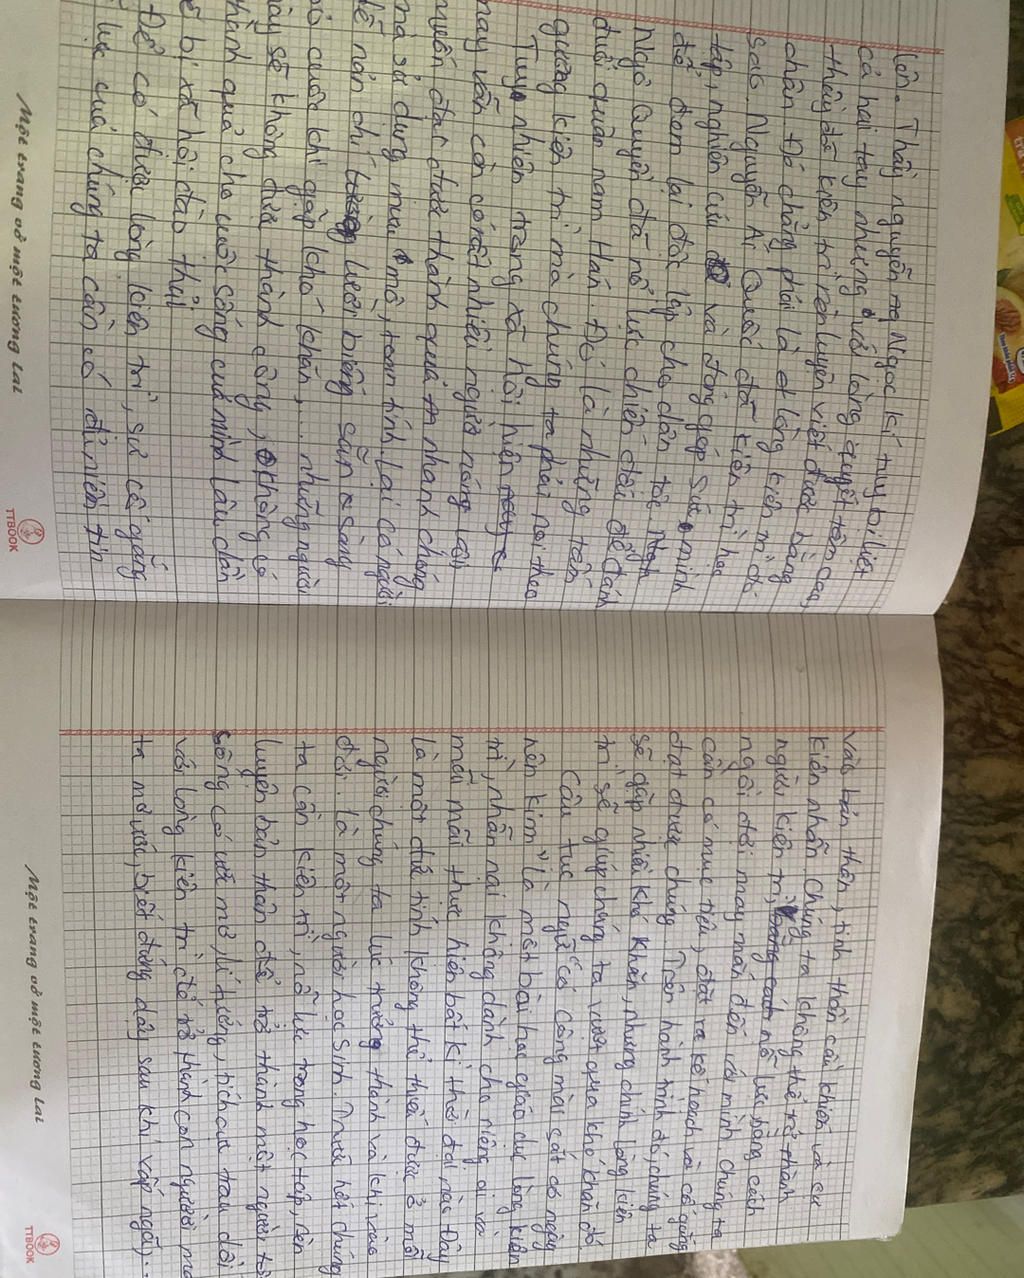 lên. Thầy nguyễn Ngọc kí tuy bị liệt
cả hai tay nhưng với lòng quyết tâm cao,
thầy đã kiên trì rèn luyện viết được bằng
chân. Đó chẳng phải là lòng kiên trì đó
sao. Nguyễn Ái Quốc đã kiên trì học
tập, nghiên cứu và đóng góp sức mình
để đem lại độc lập cho dân tộc
Ngô Quyền đã nỗ lực chiến đấu để đánh
đuổi quân nam Hán. Đó là những tấm
gương kiên trì mà chúng ta phải noi theo
Tuy nhiên trong xã hội hiện nay
nay vẫn còn có rất nhiều người nóng vội,
muốn đạt được thành quả nhanh chóng
mà sử dụng mưu mô, toan tính. Lại có người
dễ nản chí lười biếng sẵn sàng
bỏ cuộc khi gặp khó khăn,... những người
này sẽ không đưa thành công, không có
thành quả cho cuộc sống của mình lâu dần
sẽ bị xã hội đào thải
Để có được lòng kiên trì, sự cố gắng
lực của chúng ta cần có niềm tin
Một trang vở một tương lai
TTBOOK
vào bản thân, tinh thần cầu khiến và sự
kiên nhẫn. Chúng ta không thể trở thành
người kiên trì, nỗ lực bằng cách
ngồi đợi may mắn đến với mình. Chúng ta
cần có mục tiêu, đặt ra kế hoạch và cố gắng
đạt được chúng. Trên hành trình đó, chúng ta
sẽ gặp nhiều khó khăn, nhưng chính lòng kiên
trì sẽ giúp chúng ta vượt qua khó khăn đó.
Câu tục ngữ "có công mài sắt có ngày
nên kim" là một bài học giáo dục lòng kiên
trì, nhẫn nại không dành cho riêng ai và
mãi mãi thực hiện bất kì thời đại nào. Đây
là một đức tính không thể thiếu được ở mỗi
người chúng ta lúc trưởng thành và khi vào
đời. là một người học sinh. Trước hết chúng
ta cần kiên trì, nỗ lực trong học tập, rèn
luyện bản thân để trở thành một người tốt
sống có ước mơ, lí tưởng, trích
với lòng kiên trì để trở thành con người mà
ta mơ ước, biết đứng dậy sau khi vấp ngã,...
Một trang vở một tương lai
TTBOOK